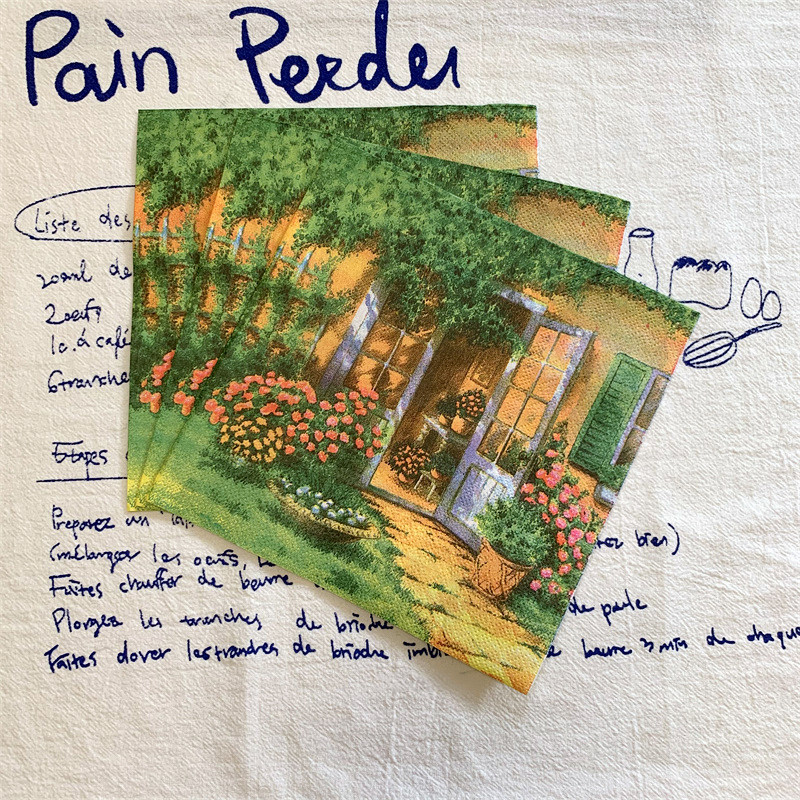 Pain Perdu
Liste des
200ml de
2 oeufs
1c. à café
6 tranche
Etapes
Preparez un
(mélanger les oeufs, rez bien)
Faites chauffer de beurre
Plongez les tranches de brioche de parle
Faites dorer les tranches de brioche imbi beurre 3 min de chaque